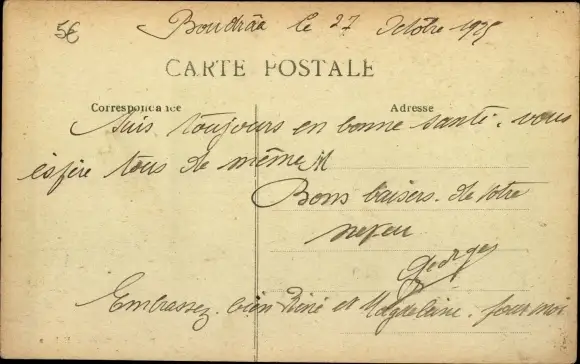 5€
Boudrâa le 27 Octobre 1925
CARTE POSTALE
Correspondance
Adresse
Suis toujours en bonne santé. vous
espère tous de même
Bons baisers. de votre
neveu
Georges
Embrassez. bien René et Magdeleine. pour moi